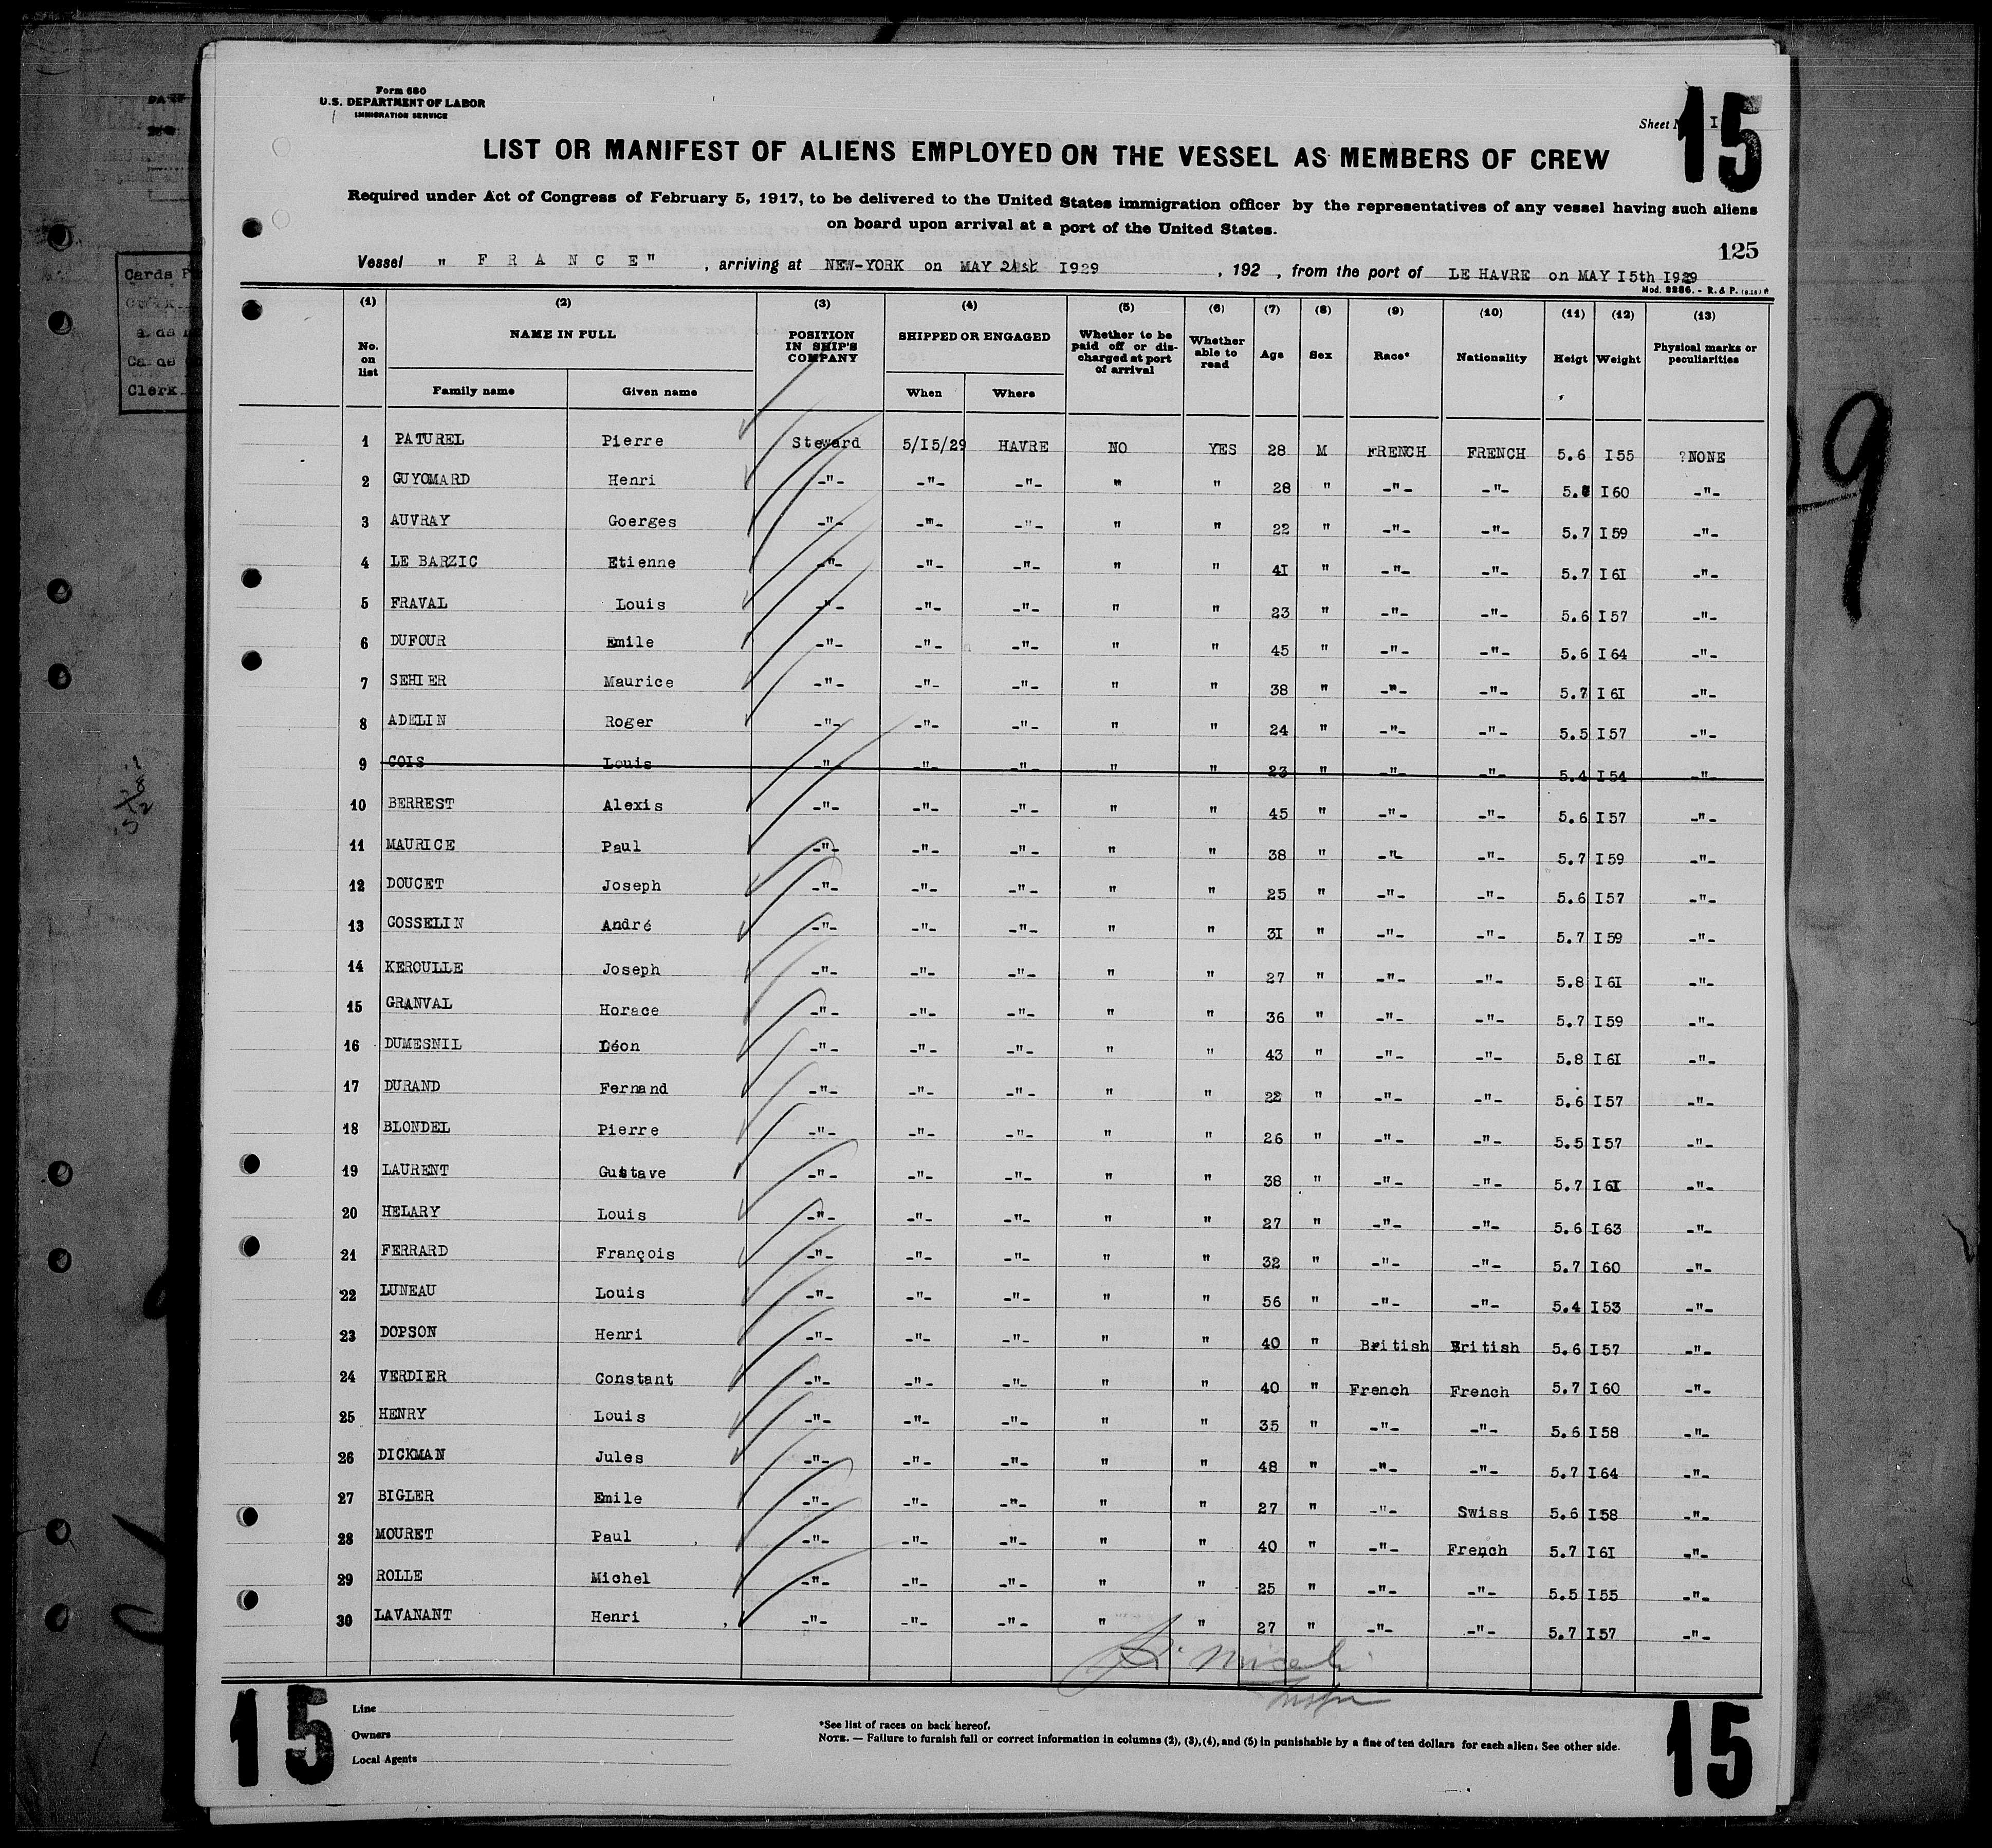 Form 680
U.S. DEPARTMENT OF LABOR
IMMIGRATION SERVICE
Sheet I
15
LIST OR MANIFEST OF ALIENS EMPLOYED ON THE VESSEL AS MEMBERS OF CREW
Required under Act of Congress of February 5, 1917, to be delivered to the United States immigration officer by the representatives of any vessel having such aliens
on board upon arrival at a port of the United States.
125
Vessel " F R A N C E " , arriving at NEW-YORK on MAY 21st I929 , 192 , from the port of LE HAVRE on MAY I5th I929
Mod. 2286. - R. & P.
(1) (2) (3) (4) (5) (6) (7) (8) (9) (10) (11) (12) (13)
No. on list NAME IN FULL POSITION IN SHIP'S COMPANY SHIPPED OR ENGAGED Whether to be paid off or discharged at port of arrival Whether able to read Age Sex Race* Nationality Heigt Weight Physical marks or peculiarities
Family name Given name When Where
1 PATUREL Pierre Steward 5/I5/29 HAVRE NO YES 28 M FRENCH FRENCH 5.6 I55 ?NONE
2 GUYOMARD Henri -"- -"- -"- " " 28 " -"- -"- 5. I60 -"-
3 AUVRAY Goerges -"- -"- -"- " " 22 " -"- -"- 5.7 I59 -"-
4 LE BARZIC Etienne -"- -"- -"- " " 4I " -"- -"- 5.7 I6I -"-
5 FRAVAL Louis -"- -"- -"- " " 23 " -"- -"- 5.6 I57 -"-
6 DUFOUR Emile -"- -"- -"- " " 45 " -"- -"- 5.6 I64 -"-
7 SEHIER Maurice -"- -"- -"- " " 38 " -"- -"- 5.7 I6I -"-
8 ADELIN Roger -"- -"- -"- " " 24 " -"- -"- 5.5 I57 -"-
9 COIS Louis -"- -"- -"- " " 23 " -"- -"- 5.4 I54 -"-
10 BERREST Alexis -"- -"- -"- " " 45 " -"- -"- 5.6 I57 -"-
11 MAURICE Paul -"- -"- -"- " " 38 " -"- -"- 5.7 I59 -"-
12 DOUCET Joseph -"- -"- -"- " " 25 " -"- -"- 5.6 I57 -"-
13 GOSSELIN André -"- -"- -"- " " 3I " -"- -"- 5.7 I59 -"-
14 KEROULLE Joseph -"- -"- -"- " " 27 " -"- -"- 5.8 I6I -"-
15 GRANVAL Horace -"- -"- -"- " " 36 " -"- -"- 5.7 I59 -"-
16 DUMESNIL Léon -"- -"- -"- " " 43 " -"- -"- 5.8 I6I -"-
17 DURAND Fernand -"- -"- -"- " " 22 " -"- -"- 5.6 I57 -"-
18 BLONDEL Pierre -"- -"- -"- " " 26 " -"- -"- 5.5 I57 -"-
19 LAURENT Gustave -"- -"- -"- " " 38 " -"- -"- 5.7 I6I -"-
20 HELARY Louis -"- -"- -"- " " 27 " -"- -"- 5.6 I63 -"-
21 FERRARD François -"- -"- -"- " " 32 " -"- -"- 5.7 I60 -"-
22 LUNEAU Louis -"- -"- -"- " " 56 " -"- -"- 5.4 I53 -"-
23 DOPSON Henri -"- -"- -"- " " 40 " British British 5.6 I57 -"-
24 VERDIER Constant -"- -"- -"- " " 40 " French French 5.7 I60 -"-
25 HENRY Louis -"- -"- -"- " " 35 " -"- -"- 5.6 I58 -"-
26 DICKMAN Jules -"- -"- -"- " " 48 " -"- -"- 5.7 I64 -"-
27 BIGLER Emile -"- -"- -"- " " 27 " -"- Swiss 5.6 I58 -"-
28 MOURET Paul -"- -"- -"- " " 40 " -"- French 5.7 I6I -"-
29 ROLLE Michel -"- -"- -"- " " 25 " -"- -"- 5.5 I55 -"-
30 LAVANANT Henri -"- -"- -"- " " 27 " -"- -"- 5.7 I57 -"-
15
Line
Owners
Local Agents
*See list of races on back hereof.
NOTE. — Failure to furnish full or correct information in columns (2), (3), (4), and (5) in punishable by a fine of ten dollars for each alien. See other side.
15
Cards
Cards
Clerk
9